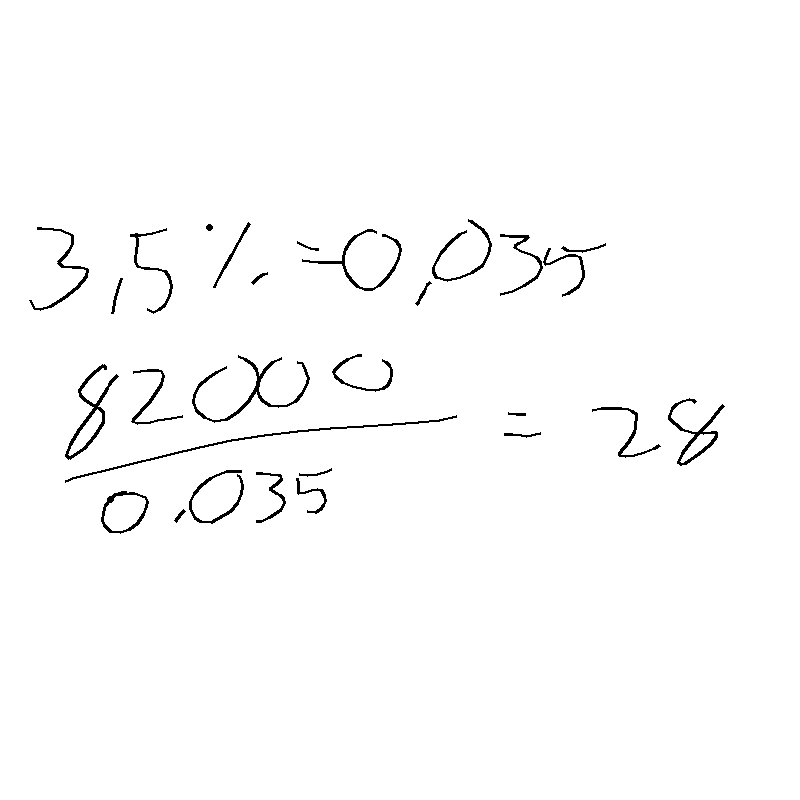 3,5% = 0,035
82000
0,035
= 28